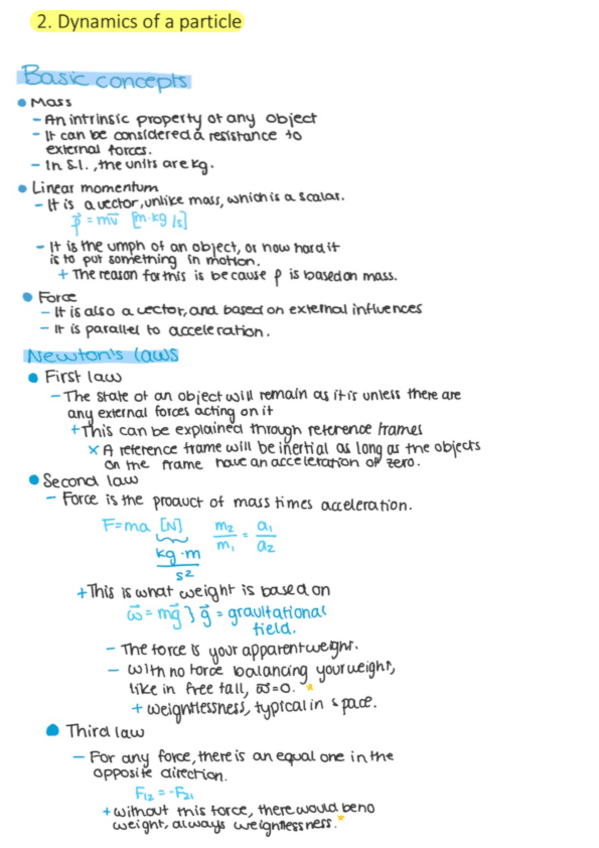 2. Dynamics of a particle
Basic concepts
• Mass
- An intrinsic property of any object
- It can be considered a resistance to
external forces.
- In S.I., the units are kg.
• Linear momentum
- It is a vector, unlike mass, which is a scalar.
p⃗ = mv⃗ [m·kg/s]
- It is the umph of an object, or how hard it
is to put something in motion.
+ The reason for this is because p is based on mass.
• Force
- It is also a vector, and based on external influences
- It is parallel to acceleration.
Newton's laws
• First law
- The state of an object will remain as it is unless there are
any external forces acting on it
+ This can be explained through reference frames
x A reference frame will be inertial as long as the objects
on the frame have an acceleration of zero.
• Second law
- Force is the product of mass times acceleration.
F=ma [N] m₂/m₁ = a₁/a₂
kg·m/s²
+ This is what weight is based on
w⃗ = mg⃗ } g⃗ = gravitational
field.
- The force is your apparent weight.
- With no force balancing your weight,
like in free fall, w⃗=0. *
+ weightlessness, typical in space.
• Third law
- For any force, there is an equal one in the
opposite direction.
F₁₂ = -F₂₁
+ without this force, there would be no
weight, always weightlessness.*